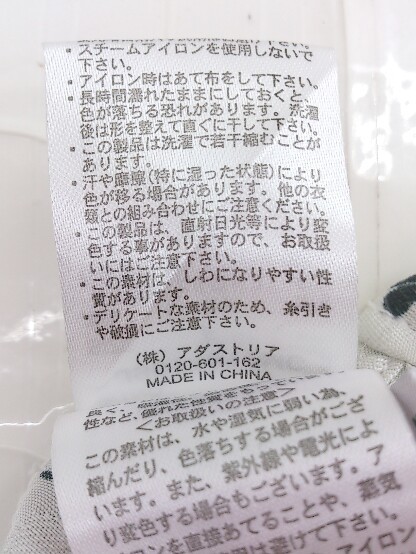 ・スチームアイロンを使用しないで
下さい。
・アイロン時はあて布をして下さい。
・長時間濡れたままにしておくと、
色が落ちる恐れがあります。洗濯
後は形を整えて直ぐに干して下さい。
・この製品は洗濯で若干縮むことが
あります。
・汗や摩擦(特に湿った状態)により
色が移る場合があります。他の衣
類との組み合わせにご注意ください。
・この製品は、直射日光等により変
色する事がありますので、お取扱
いにはご注意下さい。
・この素材は、しわになりやすい性
質があります。
・デリケートな素材のため、糸引き
や破損にご注意下さい。
(株) アダストリア
0120-601-162
MADE IN CHINA
性など、優れた性質をもって
<お取扱いの注意>
この素材は、水や湿気に弱い為、
縮んだり、色落ちする場合がござ
います。また、紫外線や電光によ
り変色する場合もございます。ア
イロンを直接あてることや、蒸気